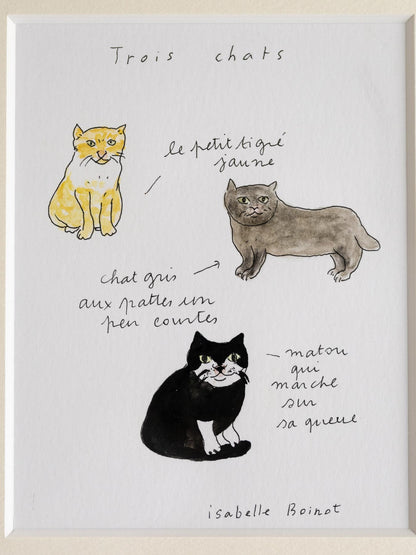 Trois chats
le petit tigré
jaune
chat gris
aux pattes un
peu courtes
matou
qui
marche
sur
sa queue
isabelle Boinot